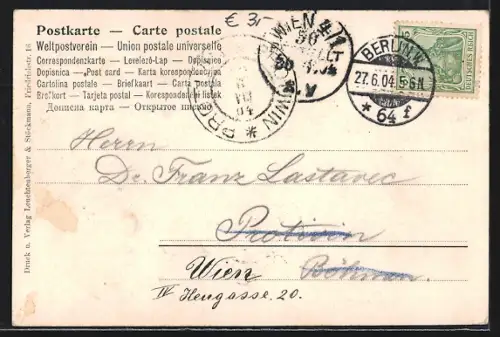 € 3,-
Postkarte — Carte postale
Weltpostverein — Union postale universelle
Correspondenzkarte — Levelező-Lap — Dopisnice
Dopisnica — Post card — Karta korespondencyjna
Cartolina postale — Briefkaart — Carta postala
Brefkort — Tarjeta postal — Korespondenční lístek
Дописна карта — Открытое письмо
WIEN 4/1
50
BERLIN W.
27.6.04. 5-6N.
* 64 f
PROTIWIN
Herrn
Dr. Franz Lastavec
Protivin
Wien Böhmen.
IV Heugasse. 20.
Druck u. Verlag Leuchtenberger & Stückmann, Friedrichstr. 16